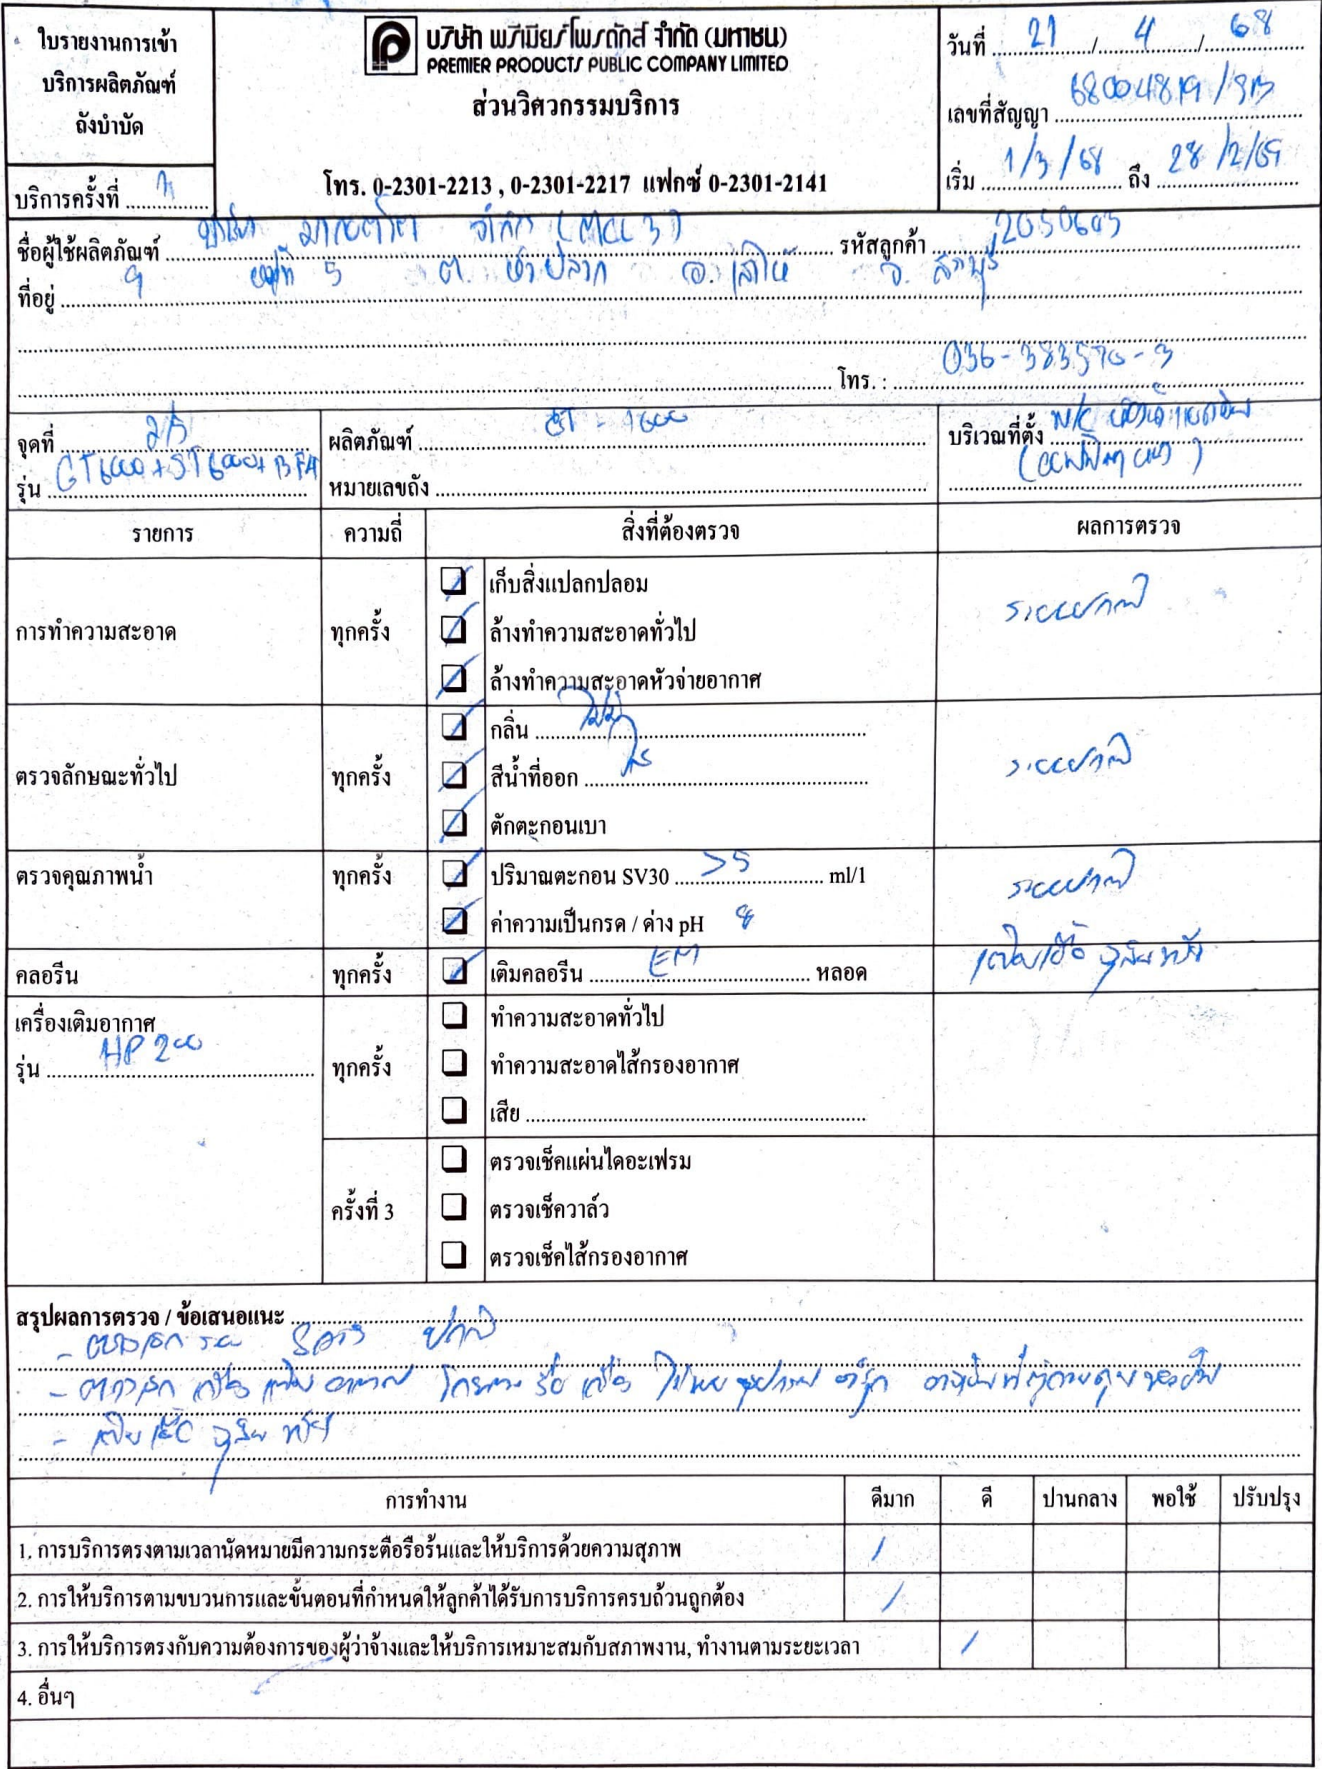 ใบรายงานการเข้า
บริการผลิตภัณฑ์
ถังบำบัด
บริการครั้งที่
บริษัท พรีเมียร์โพรดักส์ จำกัด (มหาชน)
PREMIER PRODUCTS PUBLIC COMPANY LIMITED
ส่วนวิศวกรรมบริการ
โทร. 0-2301-2213 , 0-2301-2217 แฟกซ์ 0-2301-2141
วันที่ 21 / 4 / 68
เลขที่สัญญา
เริ่ม 1/3/68 ถึง 28/2/69
ชื่อผู้ใช้ผลิตภัณฑ์ จำกัด
รหัสลูกค้า
ที่อยู่ 9 หมู่ที่ 5 ต. อ. จ. สระบุรี
โทร. : 036-383570-3
จุดที่ 2/5
รุ่น GT6000+ST6000+
ผลิตภัณฑ์
หมายเลขถัง
บริเวณที่ตั้ง
รายการ ความถี่ สิ่งที่ต้องตรวจ ผลการตรวจ
การทำความสะอาด ทุกครั้ง
เก็บสิ่งแปลกปลอม
ล้างทำความสะอาดทั่วไป
ล้างทำความสะอาดหัวจ่ายอากาศ
ระบบปกติ
ตรวจลักษณะทั่วไป ทุกครั้ง
กลิ่น ไม่มี
สีน้ำที่ออก ใส
ตักตะกอนเบา
ระบบปกติ
ตรวจคุณภาพน้ำ ทุกครั้ง
ปริมาณตะกอน SV30 >5 ml/1
ค่าความเป็นกรด / ด่าง pH 8
ระบบปกติ
คลอรีน ทุกครั้ง เติมคลอรีน EM หลอด เติมเชื้อจุลินทรีย์
เครื่องเติมอากาศ
รุ่น HP 200
ทุกครั้ง
ทำความสะอาดทั่วไป
ทำความสะอาดไส้กรองอากาศ
เสีย
ครั้งที่ 3
ตรวจเช็คแผ่นไดอะเฟรม
ตรวจเช็ควาล์ว
ตรวจเช็คไส้กรองอากาศ
สรุปผลการตรวจ / ข้อเสนอแนะ
- ปกติ
- เครื่องเติมอากาศ
- เติมเชื้อจุลินทรีย์
การทำงาน ดีมาก ดี ปานกลาง พอใช้ ปรับปรุง
1. การบริการตรงตามเวลานัดหมายมีความกระตือรือร้นและให้บริการด้วยความสุภาพ /
2. การให้บริการตามขบวนการและขั้นตอนที่กำหนดให้ลูกค้าได้รับการบริการครบถ้วนถูกต้อง /
3. การให้บริการตรงกับความต้องการของผู้ว่าจ้างและให้บริการเหมาะสมกับสภาพงาน, ทำงานตามระยะเวลา /
4. อื่นๆ